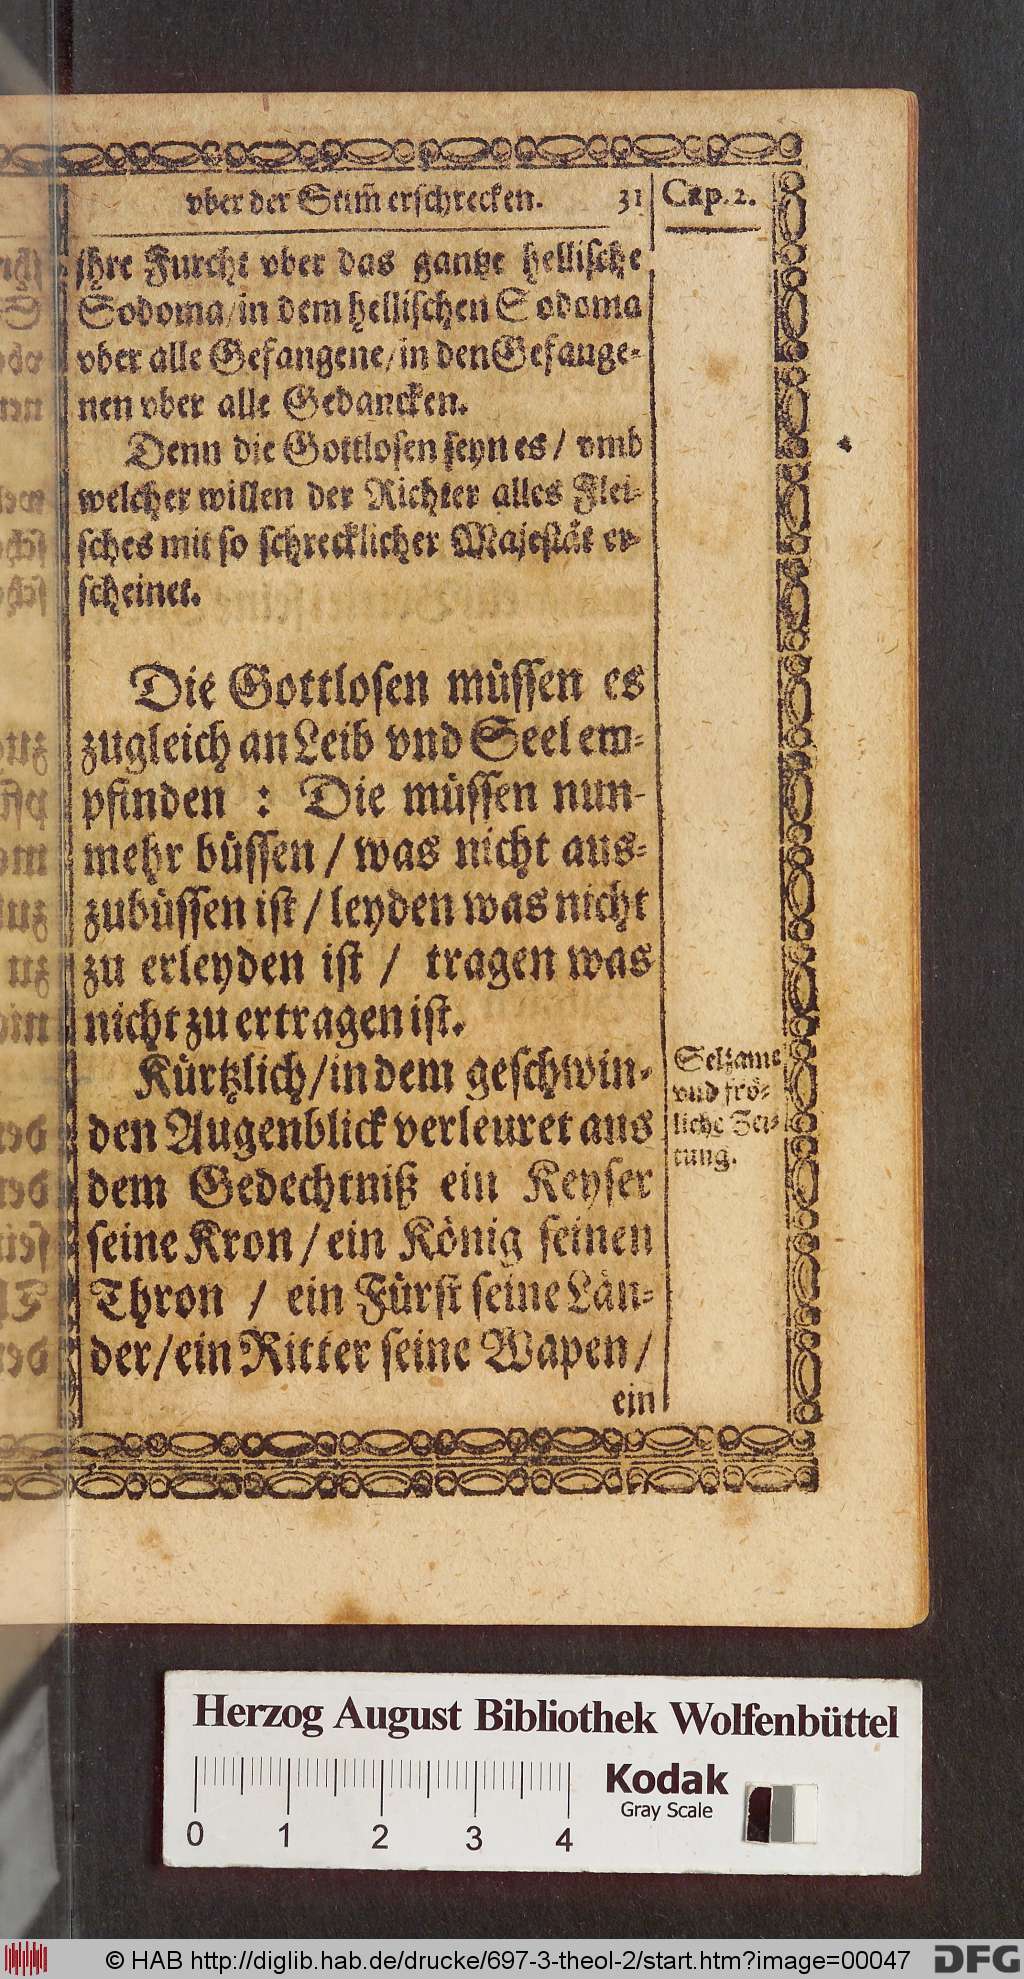 vber der Stim̃ erschrecken. 31 Cap. 2.
ihre Furcht vber das gantze hellische
Sodoma/in dem hellischen Sodoma
vber alle Gefangene/in den Gefange-
nen vber alle Gedancken.
Denn die Gottlosen seyn es / vmb
welcher willen der Richter alles Flei-
sches mit so schrecklicher Majestät er-
scheinet.
Die Gottlosen müssen es
zugleich an Leib vnd Seel em-
pfinden : Die müssen nun-
mehr büssen / was nicht aus-
zubüssen ist / leyden was nicht
zu erleyden ist / tragen was
nicht zu ertragen ist.
Kürtzlich/in dem geschwin-
den Augenblick verleuret aus
dem Gedechtniß ein Keyser
seine Kron / ein König seinen
Thron / ein Fürst seine Län-
der/ein Ritter seine Wapen /
ein
Seltzame
vnd frö-
liche Zei-
tung.
Herzog August Bibliothek Wolfenbüttel
Kodak
Gray Scale
0 1 2 3 4
© HAB http://diglib.hab.de/drucke/697-3-theol-2/start.htm?image=00047 DFG